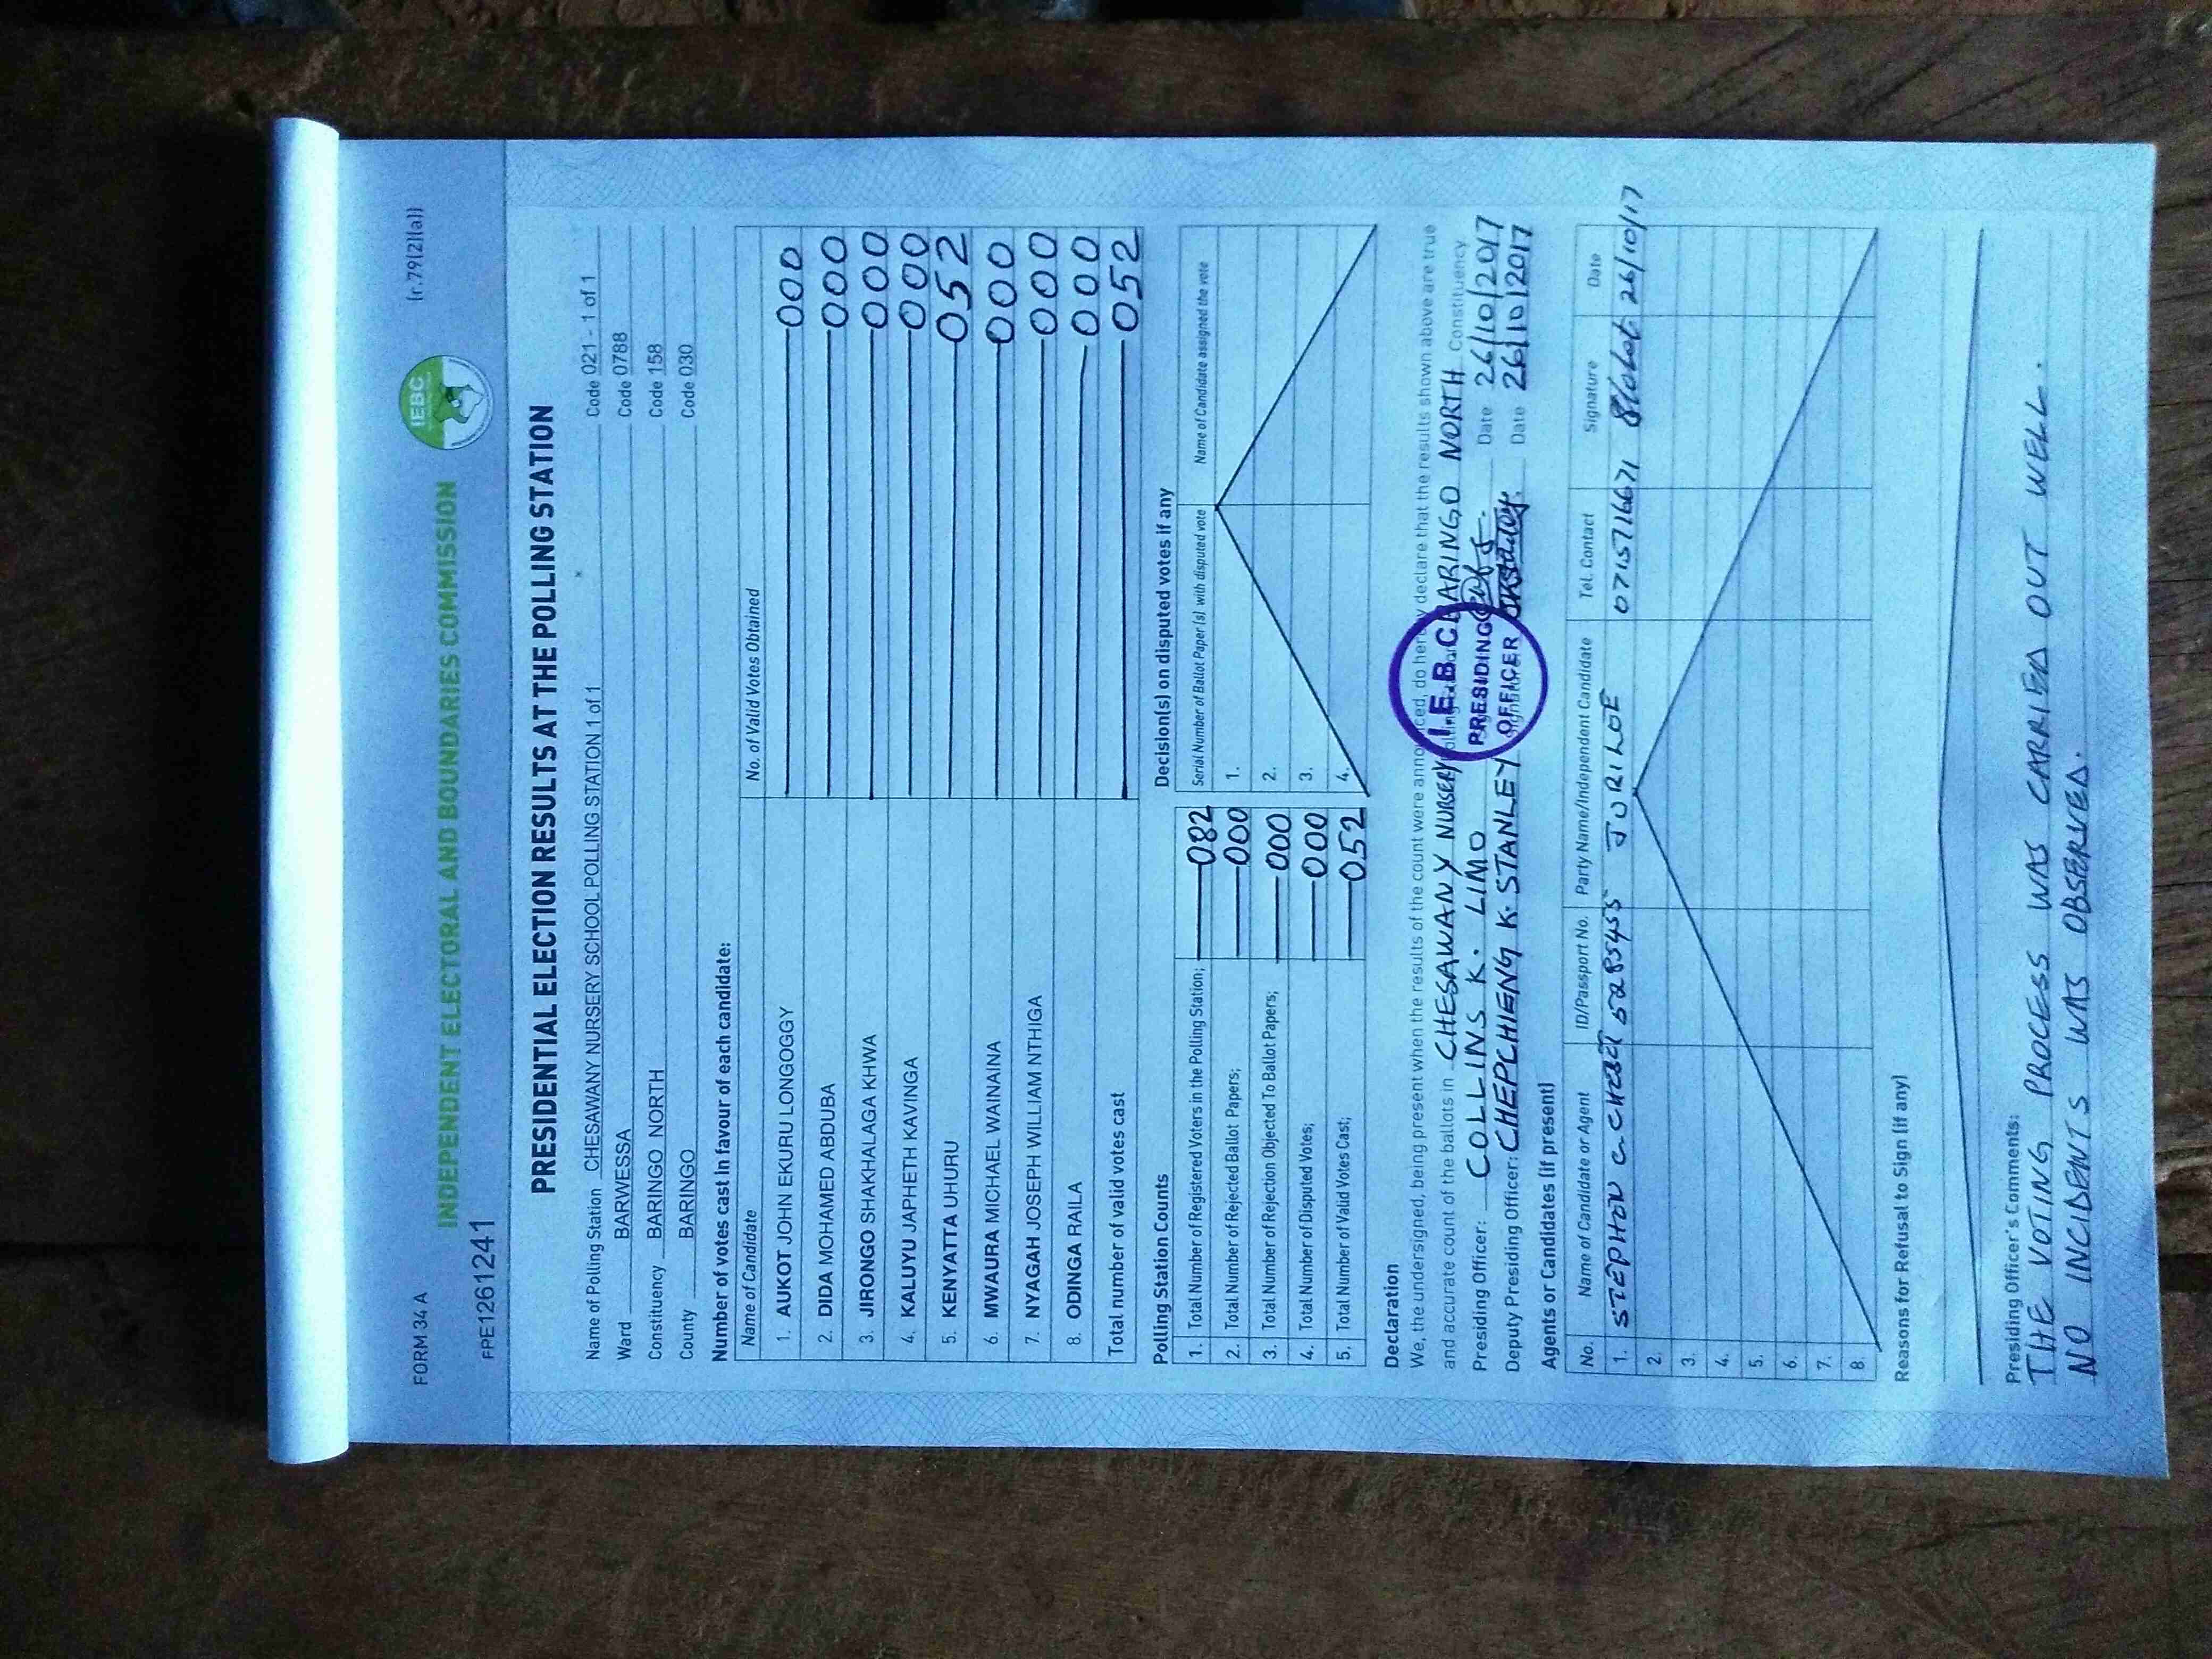 FORM 34 A
(r.79(2)(a))
IEBC
INDEPENDENT ELECTORAL AND BOUNDARIES COMMISSION
FPE1261241
PRESIDENTIAL ELECTION RESULTS AT THE POLLING STATION
Name of Polling Station CHESAWANY NURSERY SCHOOL POLLING STATION 1 of 1 Code 021 - 1 of 1
Ward BARWESSA Code 0788
Constituency BARINGO NORTH Code 158
County BARINGO Code 030
Number of votes cast in favour of each candidate:
Name of Candidate No. of Valid Votes Obtained
1. AUKOT JOHN EKURU LONGOGGY 000
2. DIDA MOHAMED ABDUBA 000
3. JIRONGO SHAKHALAGA KHWA 000
4. KALUYU JAPHETH KAVINGA 000
5. KENYATTA UHURU 052
6. MWAURA MICHAEL WAINAINA 000
7. NYAGAH JOSEPH WILLIAM NTHIGA 000
8. ODINGA RAILA 000
Total number of valid votes cast 052
Polling Station Counts
1. Total Number of Registered Voters in the Polling Station; 082
2. Total Number of Rejected Ballot Papers; 000
3. Total Number of Rejection Objected To Ballot Papers; 000
4. Total Number of Disputed Votes; 000
5. Total Number of Valid Votes Cast; 052
Decision(s) on disputed votes if any
Serial Number of Ballot Paper (s) with disputed vote Name of Candidate assigned the vote
1.
2.
3.
4.
Declaration
We, the undersigned, being present when the results of the count were announced, do hereby declare that the results shown above are true
and accurate count of the ballots in CHESAWANY NURSERY BARINGO NORTH Constituency
Presiding Officer: COLLINS K. LIMO Date 26/10/2017
Deputy Presiding Officer: CHEPCHIENG K. STANLEY Date 26/10/2017
I.E.B.C
PRESIDING
OFFICER
Agents or Candidates (if present)
No. Name of Candidate or Agent ID/Passport No. Party Name/Independent Candidate Tel. Contact Signature Date
1. STEPHON 5285455 0715716671 26/10/17
2.
3.
4.
5.
6.
7.
8.
Reasons for Refusal to Sign (if any)
Presiding Officer's Comments:
THE VOTING PROCESS WAS CARRIED OUT WELL.
NO INCIDENTS WAS OBSERVED.